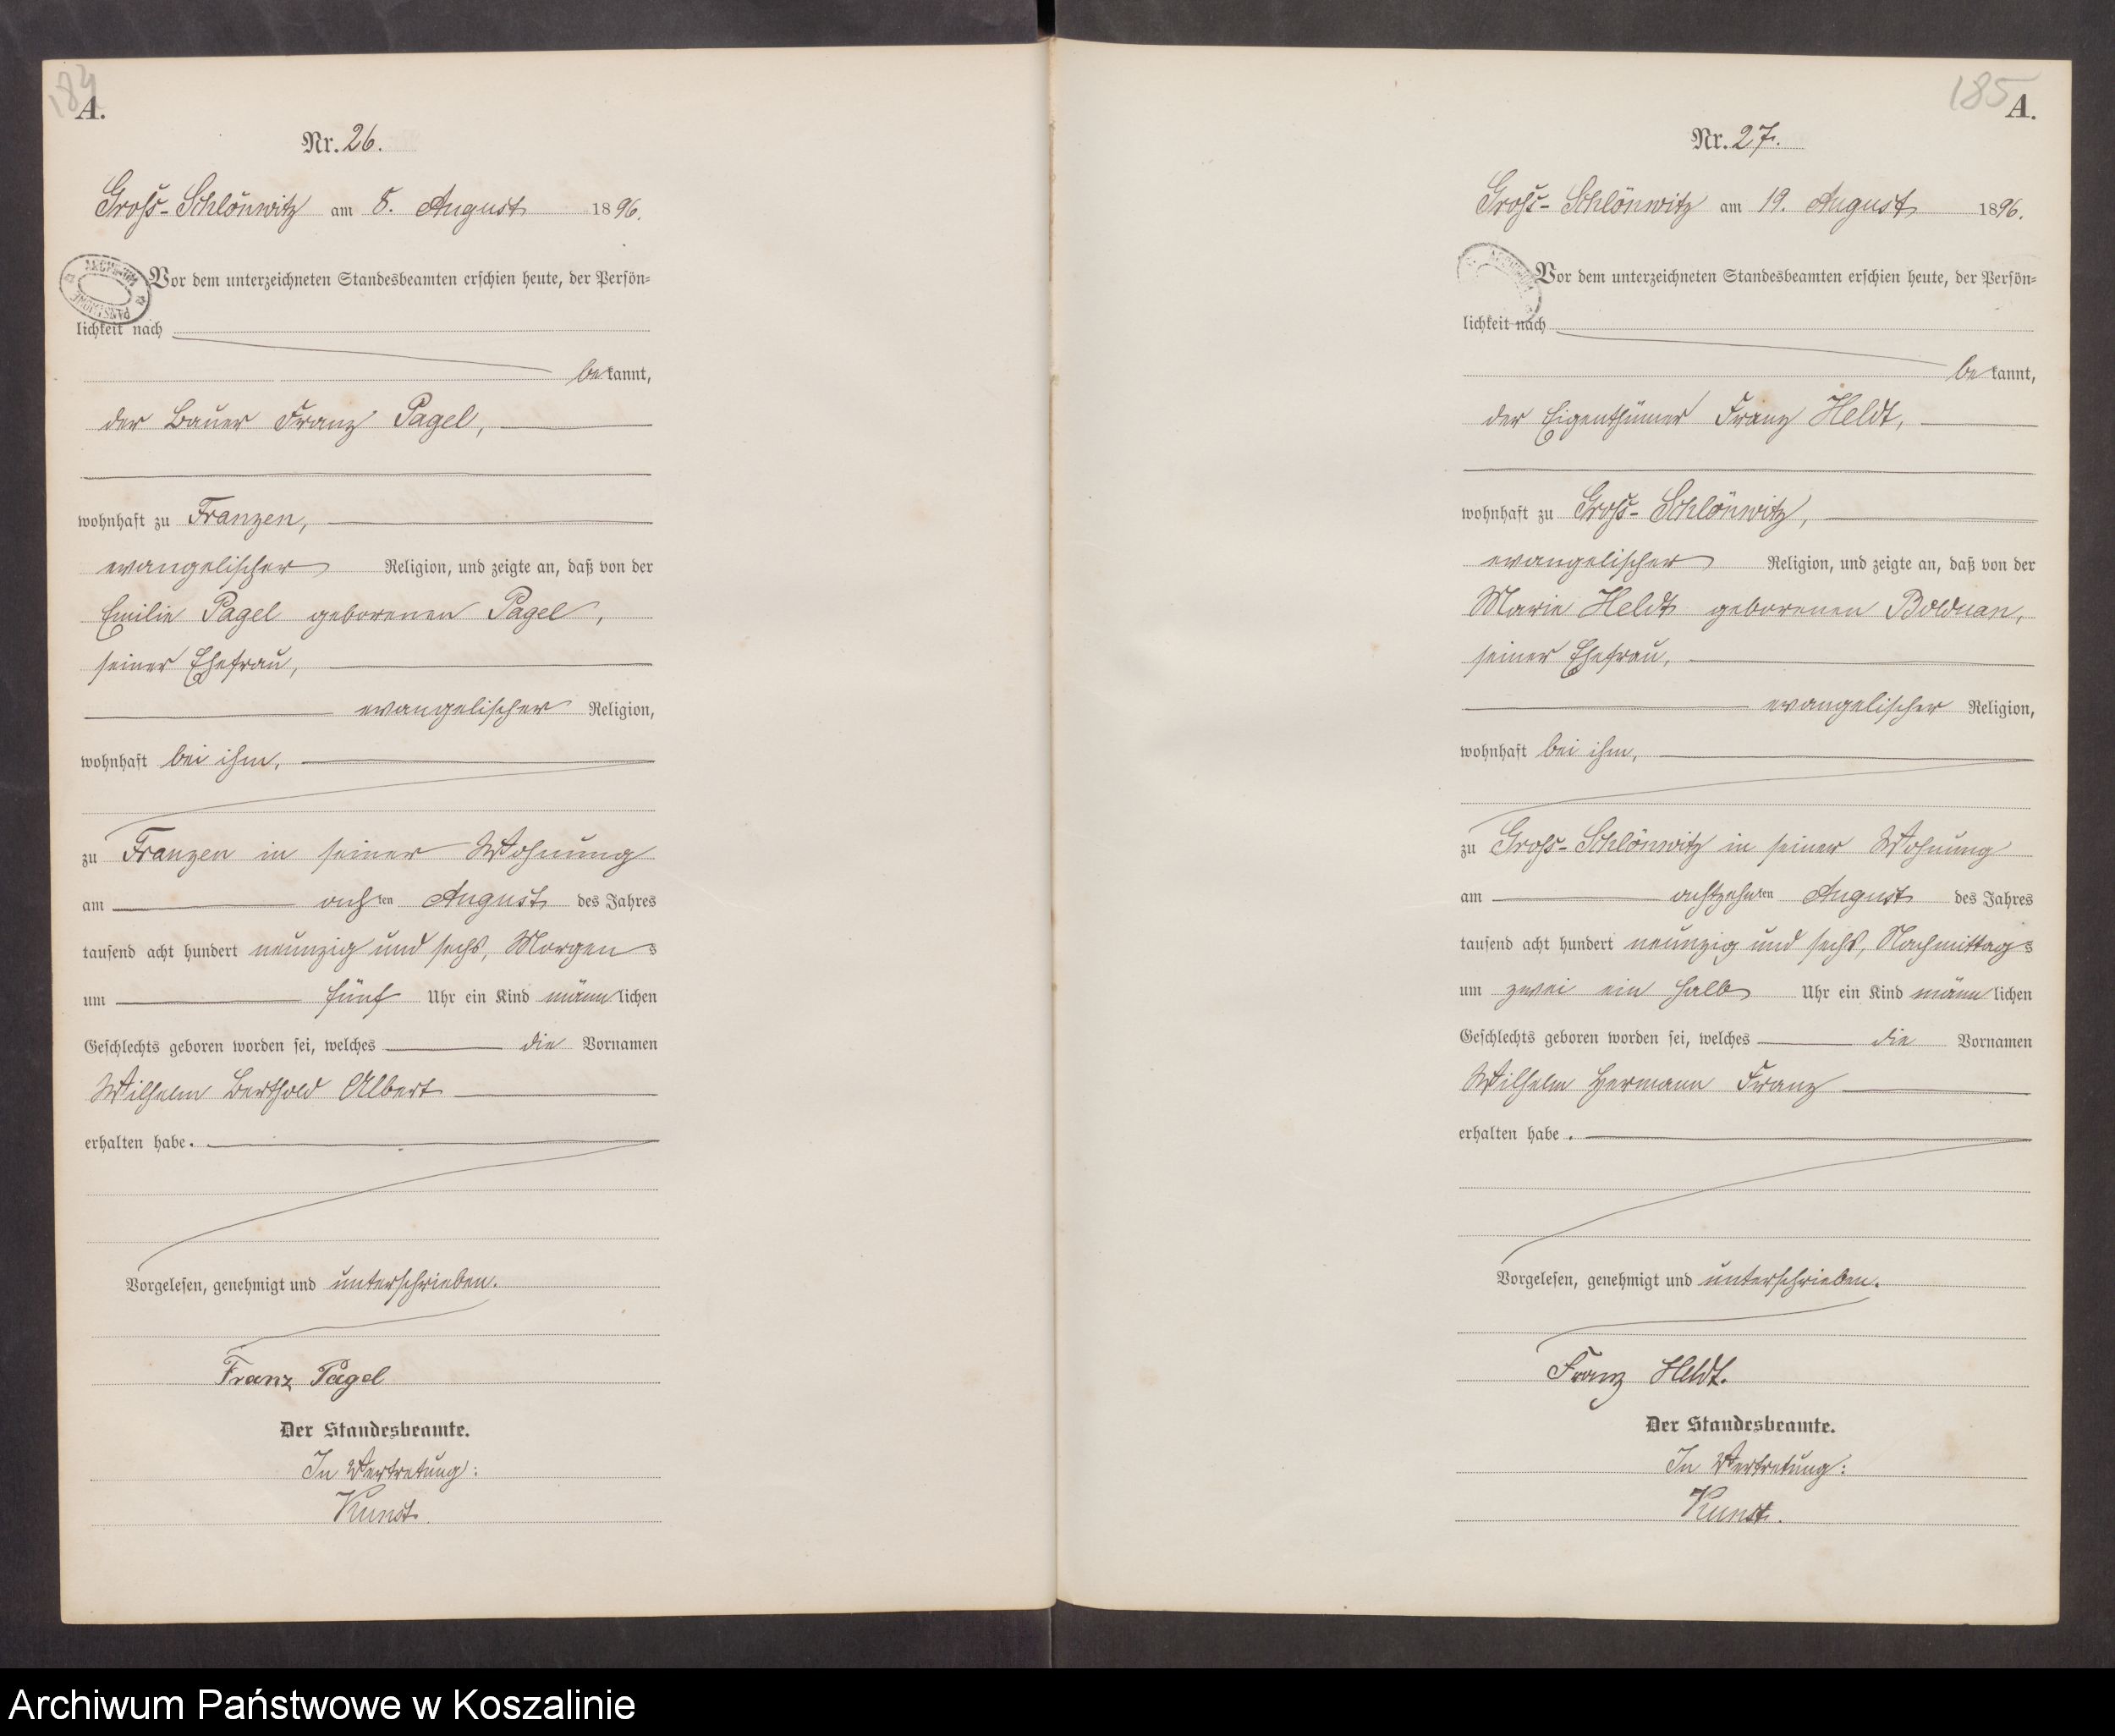 184
A.
Nr. 26.
Groß-Schlönwitz am 8. August 1896.
ARCHIWUM PAŃSTWOWE
Vor dem unterzeichneten Standesbeamten erschien heute, der Persön-
lichkeit nach
bekannt,
der Bauer Franz Pagel,
wohnhaft zu Franzen,
evangelischer Religion, und zeigte an, daß von der
Emilie Pagel geborenen Pagel,
seiner Ehefrau,
evangelischer Religion,
wohnhaft bei ihm,
zu Franzen in seiner Wohnung
am achten August des Jahres
tausend acht hundert neunzig und sechs, Morgens
um fünf Uhr ein Kind männlichen
Geschlechts geboren worden sei, welches die Vornamen
Wilhelm Berthold Albert
erhalten habe.
Vorgelesen, genehmigt und unterschrieben.
Franz Pagel
Der Standesbeamte.
In Vertretung:
Kunst.
185
A.
Nr. 27.
Groß-Schlönwitz am 19. August 1896.
Vor dem unterzeichneten Standesbeamten erschien heute, der Persön-
lichkeit nach
bekannt,
der Eigenthümer Franz Heldt,
wohnhaft zu Groß-Schlönwitz,
evangelischer Religion, und zeigte an, daß von der
Marie Heldt geborenen Bolduan,
seiner Ehefrau,
evangelischer Religion,
wohnhaft bei ihm,
zu Groß-Schlönwitz in seiner Wohnung
am achtzehnten August des Jahres
tausend acht hundert neunzig und sechs, Nachmittags
um zwei ein halb Uhr ein Kind männlichen
Geschlechts geboren worden sei, welches die Vornamen
Wilhelm Hermann Franz
erhalten habe.
Vorgelesen, genehmigt und unterschrieben.
Franz Heldt.
Der Standesbeamte.
In Vertretung:
Kunst.
Archiwum Państwowe w Koszalinie